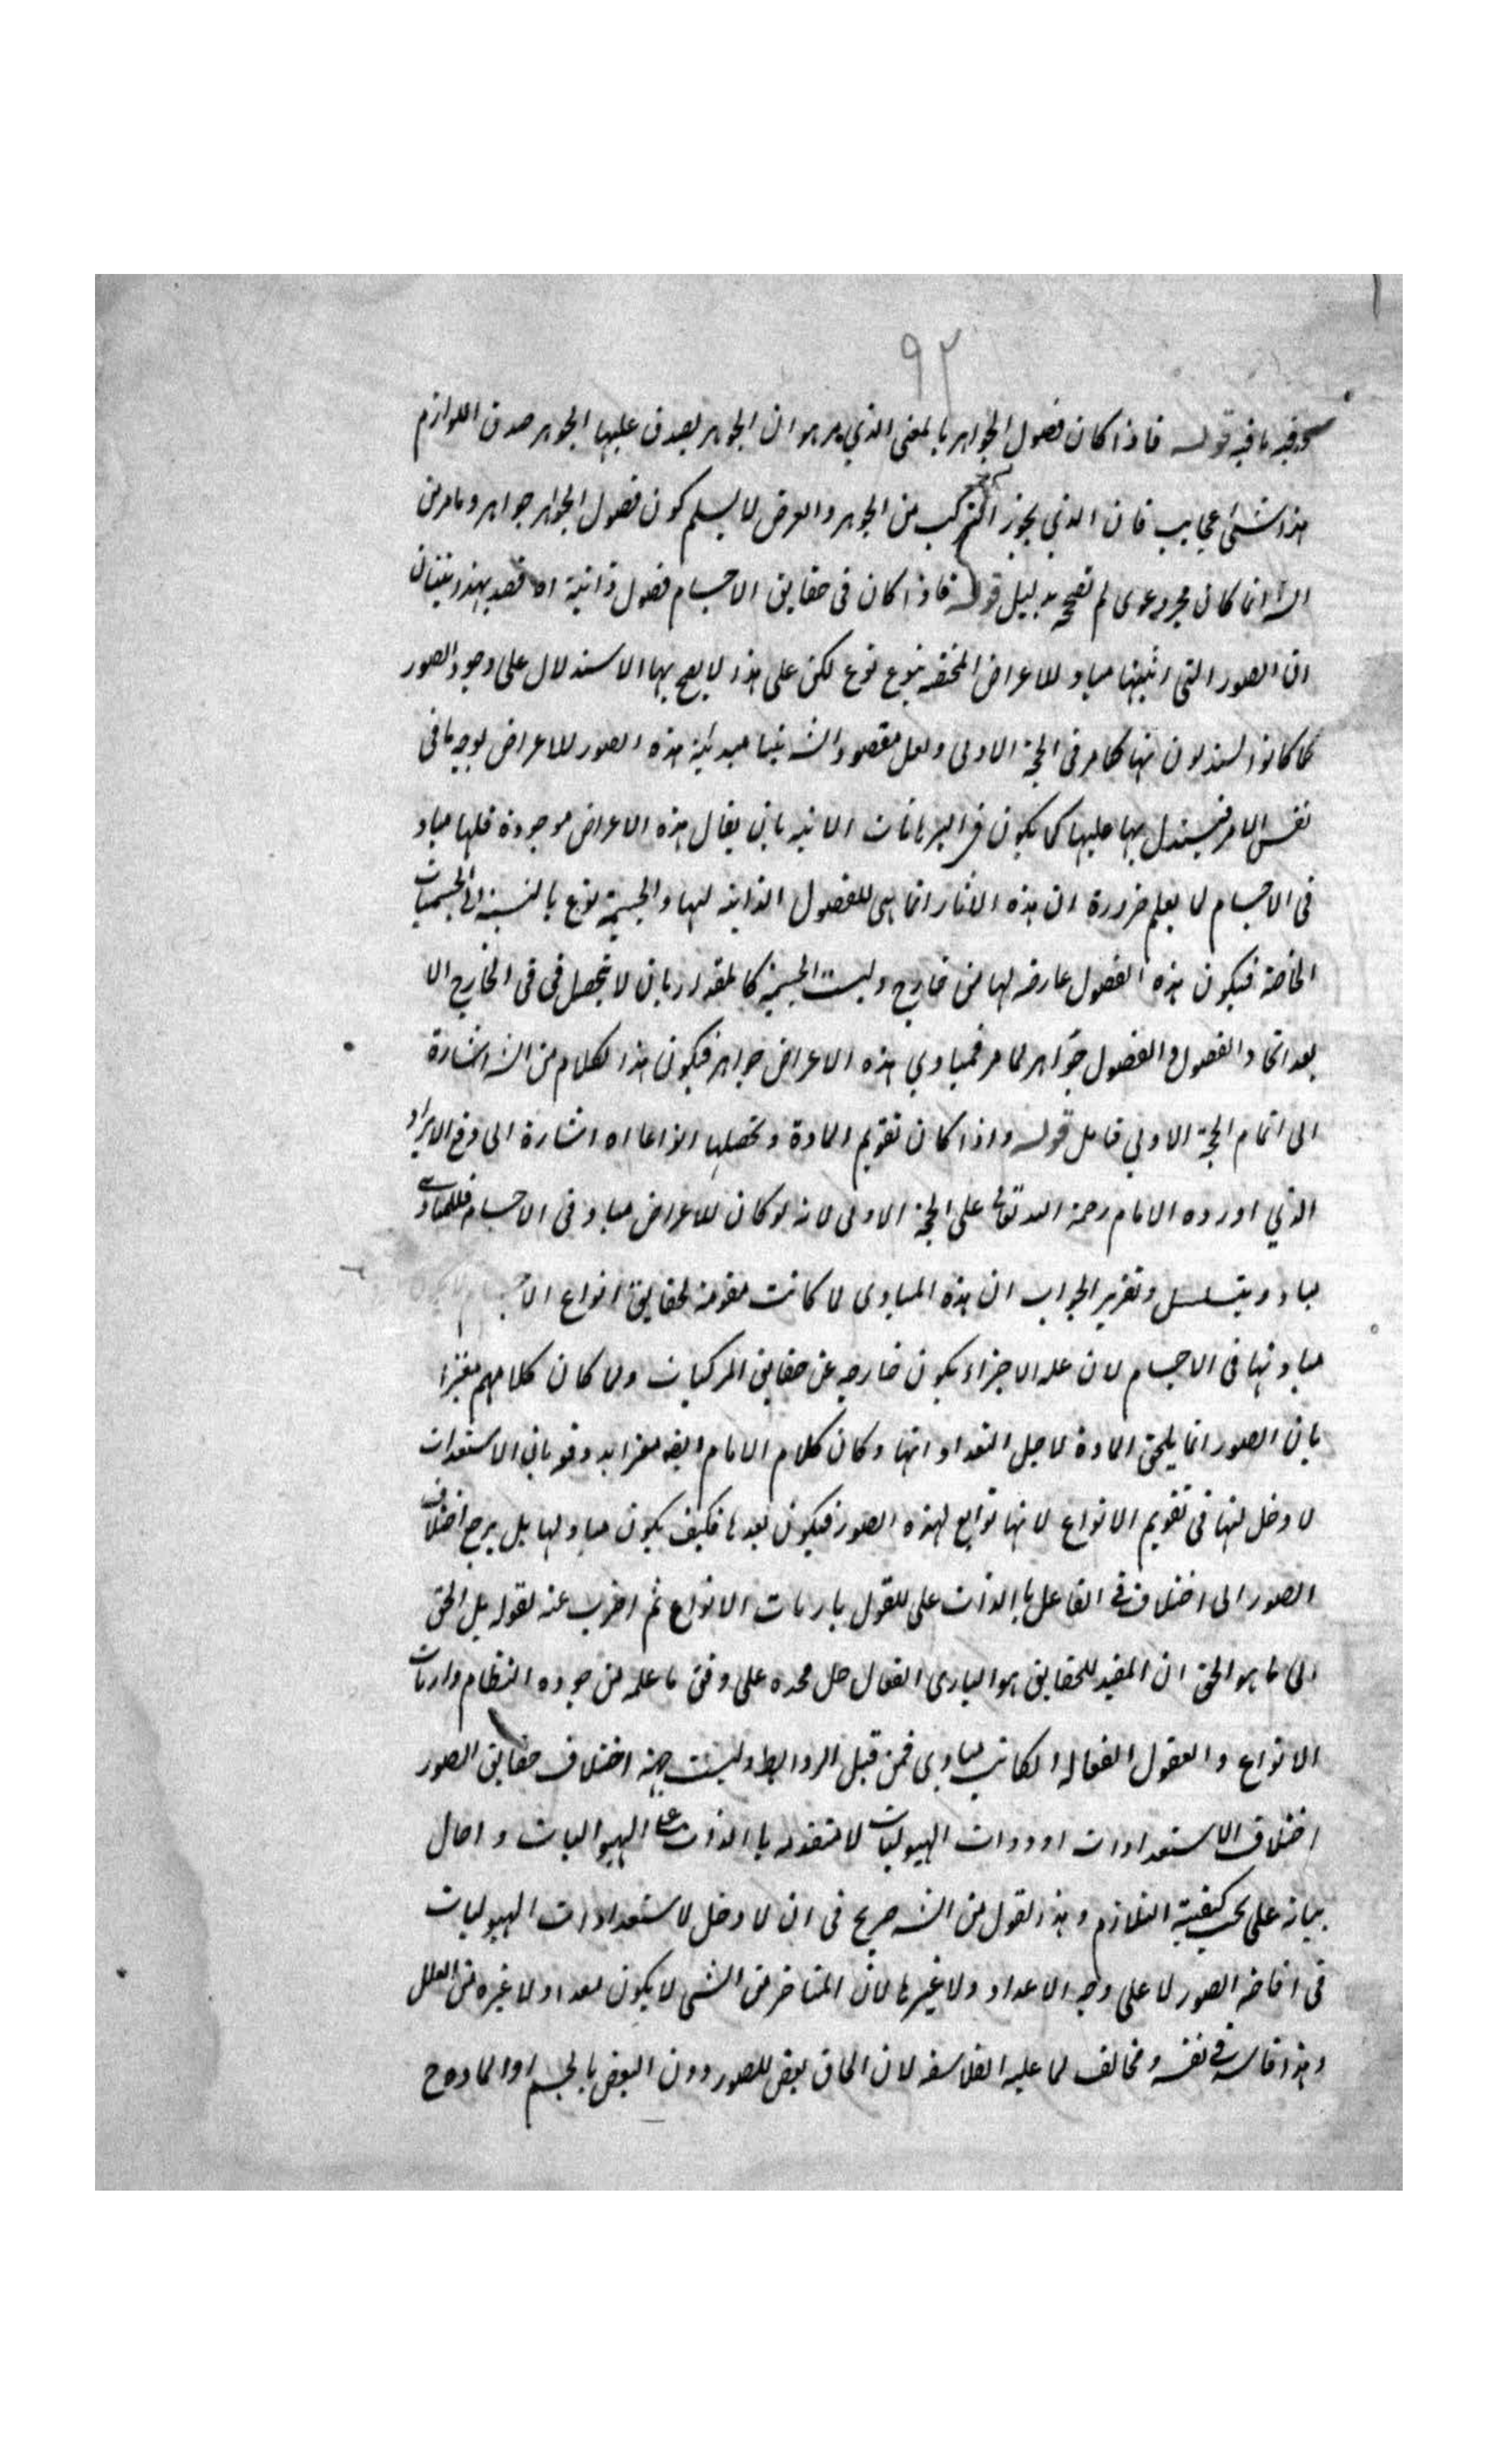 ٩٢
وفيه ما فيه قوله فاذا كان فصول الجواهر بالمعنى الذي مر هو ان الجوهر يصدق عليها الجوهر صدق اللوازم
هذا شئ عجايب فان الذي يجوز التركب من الجوهر والعرض لا يسلم كون فصول الجواهر جواهر وما مر من
انما كان مجرد دعوى لم تصح بدليل قوله فاذا كان في حقايق الاجسام فصول ذاتية اه قصد بهذا بيان
ان الصور التي اثبتها مباد للاعراض المختصة بنوع نوع لكن على هذا لا يصح بها الاستدلال على وجود الصور
كما كانوا يستدلون بها كما مر في الحجة الاولى ولعل مقصود مبدئية هذه الصور للاعراض بوجه ما في
نفس الامر فيستدل بها عليها كما يكون في البرهانات الانية بان يقال هذه الاعراض موجودة فلها مباد
في الاجسام لا يعلم ضرورة ان هذه الآثار انما هي للفصول الذاتية لها والجسمية نوع بالنسبة الى الجسميات
الخاصة فيكون هذه الفصول عارضة لها من خارج وليست الجسمية كالمقدار بان لا تحصل في في الخارج الا
بعد اتحاد الفصول والفصول جواهر لما مر فمبادي هذه الاعراض جواهر فيكون هذا الكلام من اشارة
الى اتمام الحجة الاولى فتأمل قوله واذا كان تقويم المادة وتحصلها انواعا اه اشارة الى دفع الايراد
الذي اورده الامام رحمة الله تعالى على الحجة الاولى لانه لو كان للاعراض مباد في الاجسام فللمبادي
مباد ويتسلسل وتقرير الجواب ان هذه المبادى لما كانت مقومة لحقايق انواع
مباديها في الاجسام لان علة الاجزاء يكون خارجه عن حقايق المركبات ولما كان كلامهم
بان الصور انما يلحق المادة لاجل استعداداتها وكان كلام الامام ايضا دفعه بان الاستعدادات
لا دخل لها في تقويم الانواع لانها توابع لهذه الصور فيكون بعدها فكيف يكون مباد لها بل يرجع اختلاف
الصور الى اختلاف في الفاعل بالذات على القول باربات الانواع ثم اضرب عنه لقوله بل الحق
الى ما هو الحق ان المفيد للحقايق هو الباري الفعال جل مجده على وفق ما علمه من جوده النظام وارباب
الانواع والعقول الفعاله لكانت مبادي فمن قبل الروابط وليست جهة اختلاف حقايق الصور
اختلاف الاستعدادات او ذوات الهيوليات لا متقدمه بالذات على الهيوليات واحال
بيانه على بحث كيفيته التلازم وهذا القول من صريح في ان لا دخل لاستعدادات الهيوليات
في افاضه الصور لا على وجه الاعداد ولا غيرها لان المتاخر من الشى لا يكون معدا ولا غيره من العلل
وهذا فاسد في نفسه ومخالف لما عليه الفلاسفه لان الحاق بعض الصور دون البعض بالجسم او المادة ح